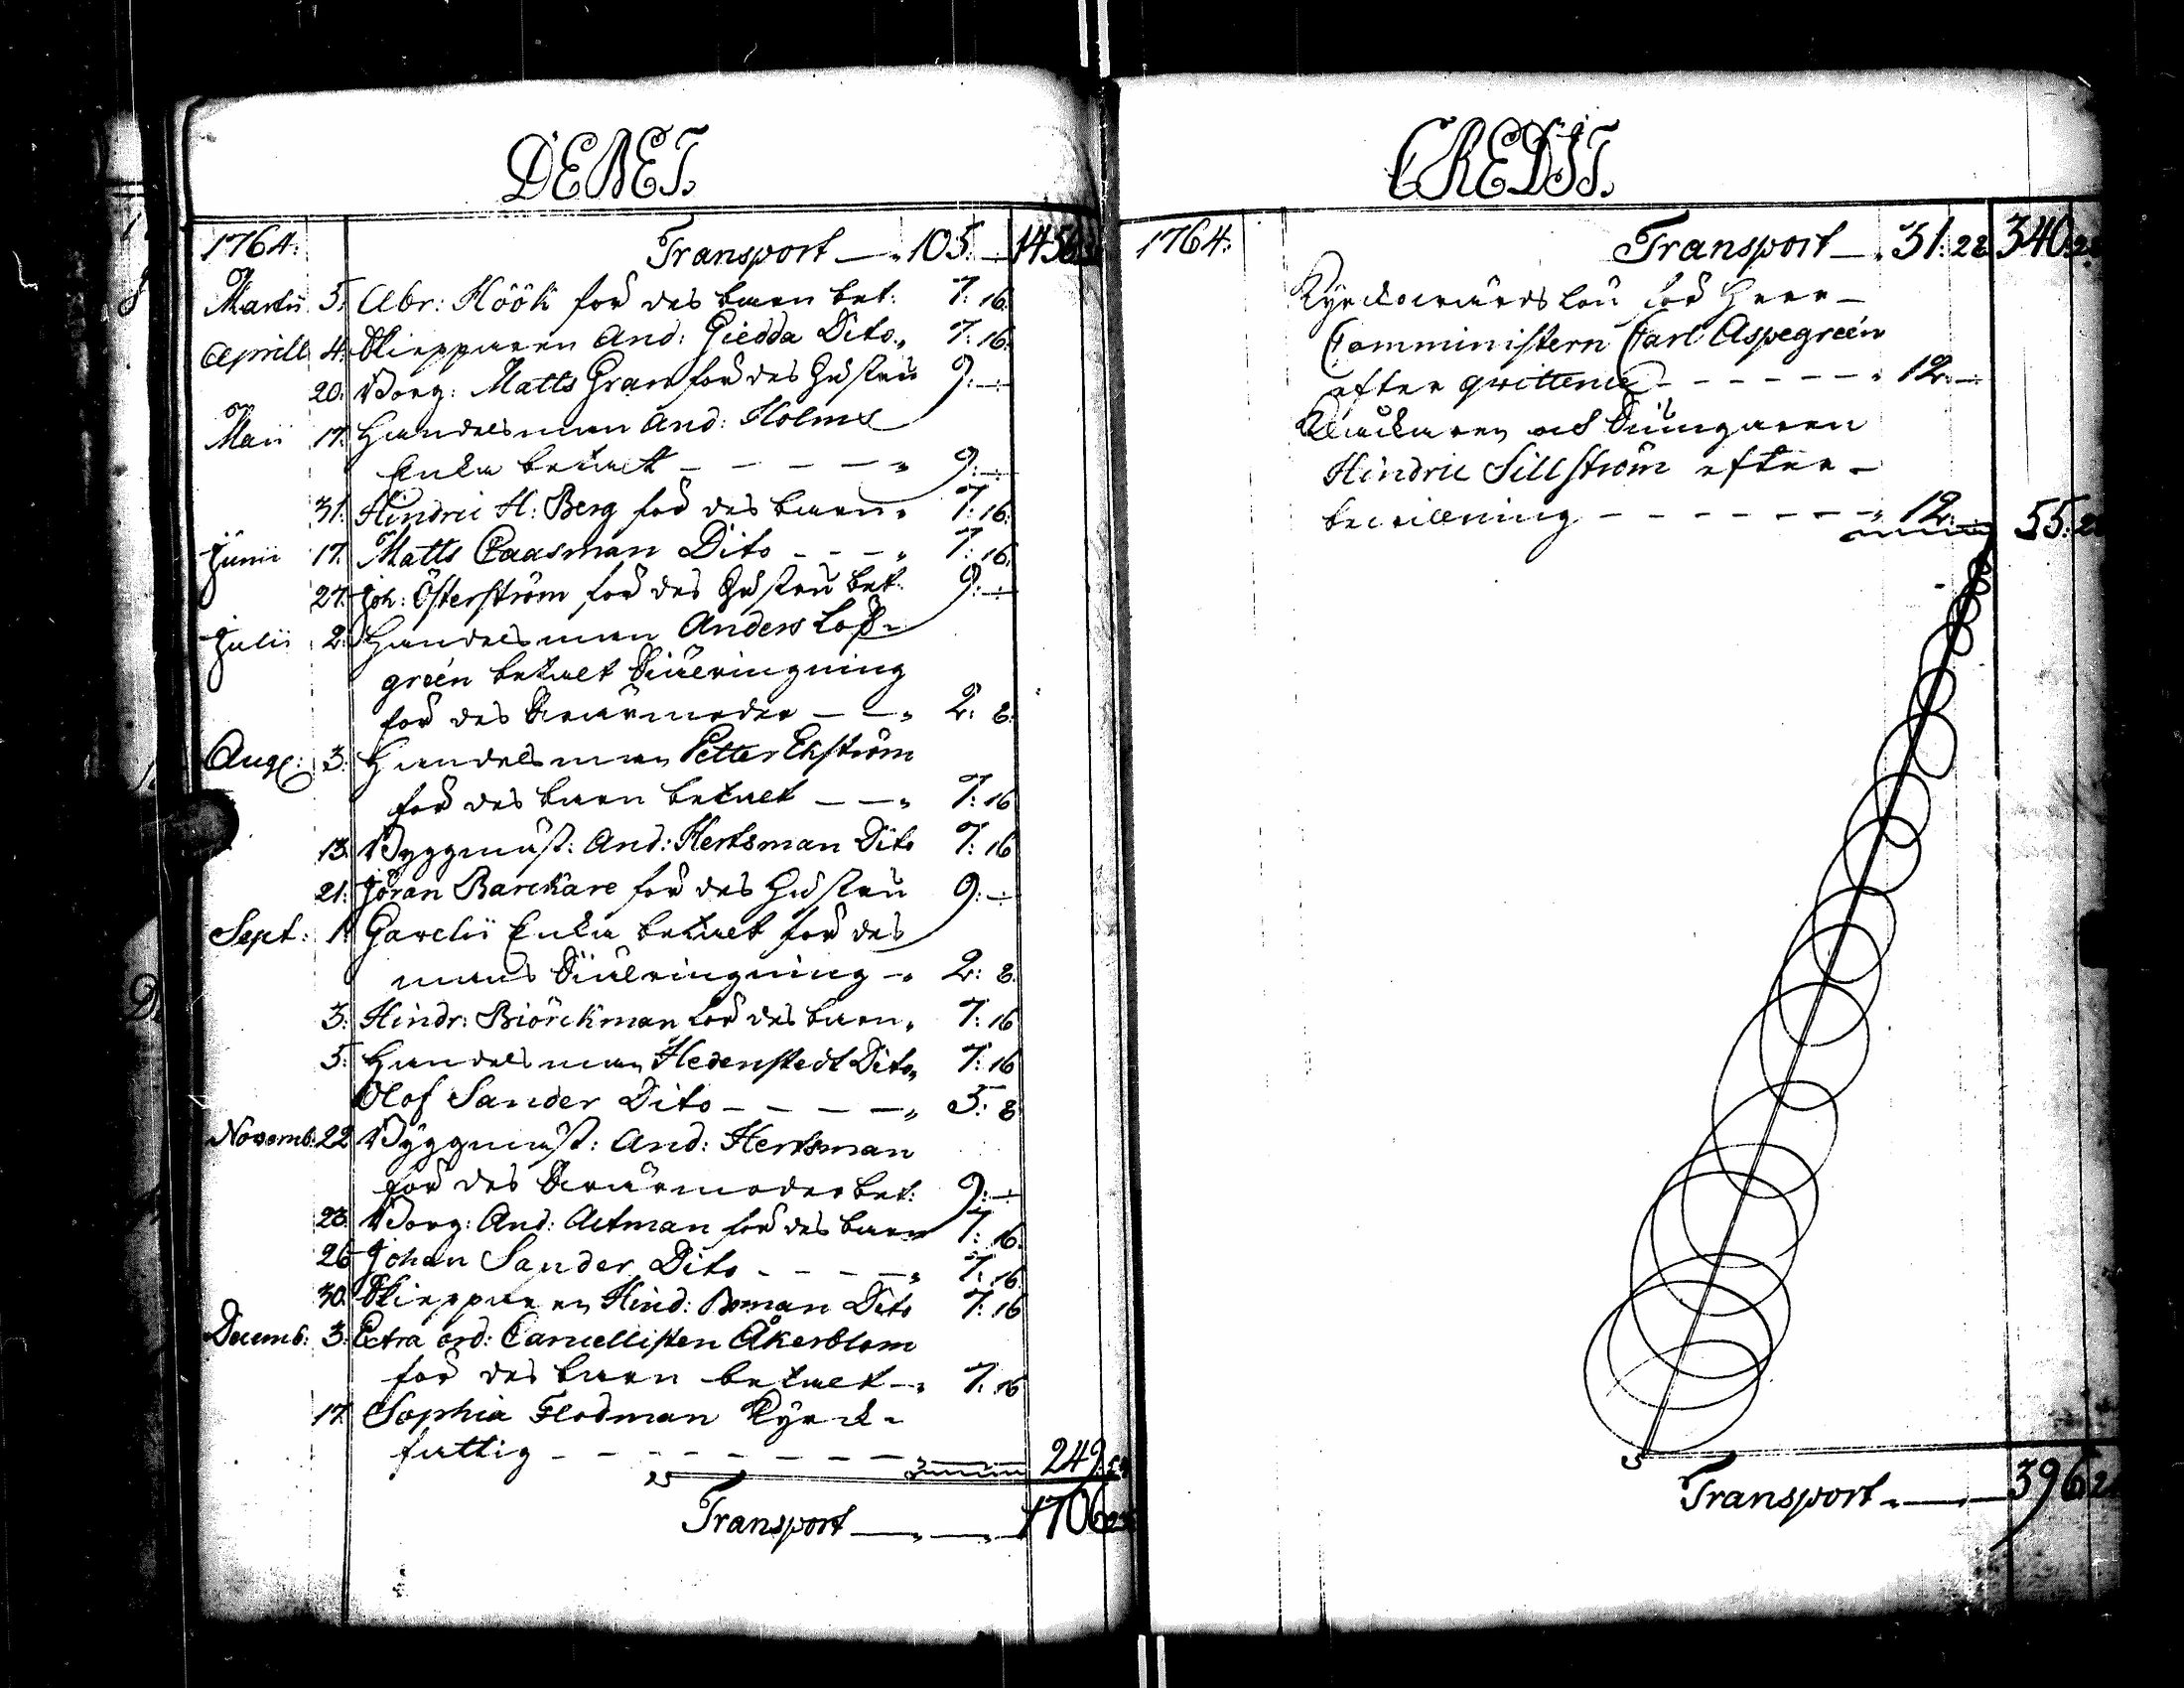 DEBET.
1764. Transport — 105: — 1456
Martii 5. Abr: Höök för des barn bet: 7: 16.
Aprill 4. Skiepparen And: Giedda Dito 7: 16.
20. Borg: Matts Gran för des Hustru 9: —
Maii 17. Handelsman And: Holms
Enka betalt — — — — 9: —
31. Hindric H: Berg för des barn 7: 16.
Junii 17. Matts Caasman Dito — — — 7: 16.
27. Joh: Österström för des Hustru bet: 9: —
Julii 2. Handelsman Anders Loß-
green betalt Siälringning
för des Swärmoder — — 2: 8.
Aug: 3. Handelsman Petter Ekström
för des barn betalt — — 7: 16
13. Byggmäst: And: Hertsman Dito 7: 16
21. Jöran Barckare för des Hustru 9: —
Sept: 1. Garelii Enka betalt för des
mans Siälringning — 2: 8.
3. Hindr: Biörckman för des barn 7: 16
5. Handelsman Hedenstedt Dito 7: 16
Olof Sander Dito — — — — 5: 8
Novemb: 22 Byggmäst: And: Hertsman
för des Swärmoder bet: 9: —
23. Borg: And: Aetman för des barn 7: 16.
26 Johan Sander Dito — — — — 7: 16.
30. Skiepparen Hind: Boman Dito 7: 16
Decemb: 3. Extra ord: Cancellisten Åkerblom
för des barn betalt — 7: 16
17. Sophia Flodman Kyrck-
fattig — — — — — — — — 249:
Transport — — 1706
CREDIT.
1764. Transport — 31: 22 340:
Kyrckowärds lön för Herr
Comministern Carl Aspegreén
efter qvittence — — — — — — 12: —
Klåckaren och Diungaren
Hindric Sillström efter
bewillning — — — — — — — 12: — 55:
Transport — — 396